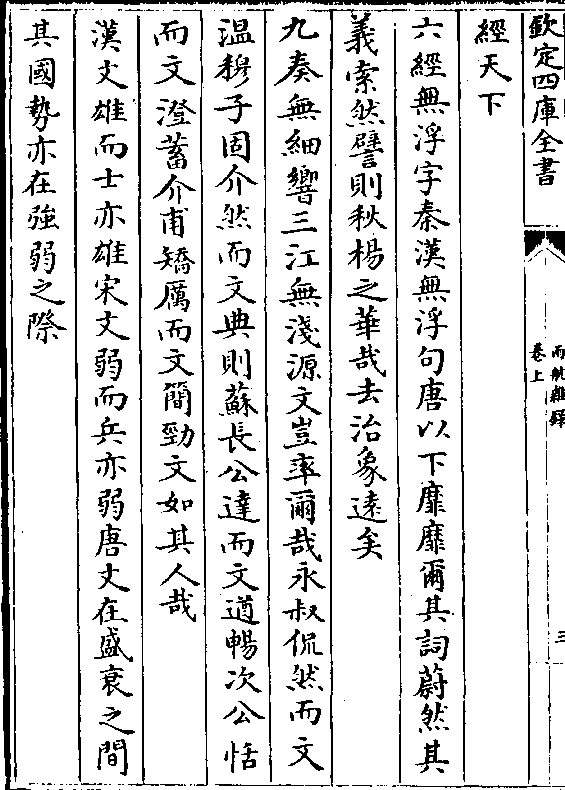 欽定四庫全書
雨航雜録
卷上
三
經天下
六經無浮字秦漢無浮句唐以下靡靡爾其詞蔚然其
義索然譬則秋楊之華哉去治象逺矣
九奏無細響三江無淺源文豈率爾哉永叔侃然而文
温穆子固介然而文典則蘇長公達而文遒暢次公恬
而文澄蓄介甫矯厲而文簡勁文如其人哉
漢文雄而士亦雄宋文弱而兵亦弱唐文在盛衰之間
其國勢亦在強弱之際